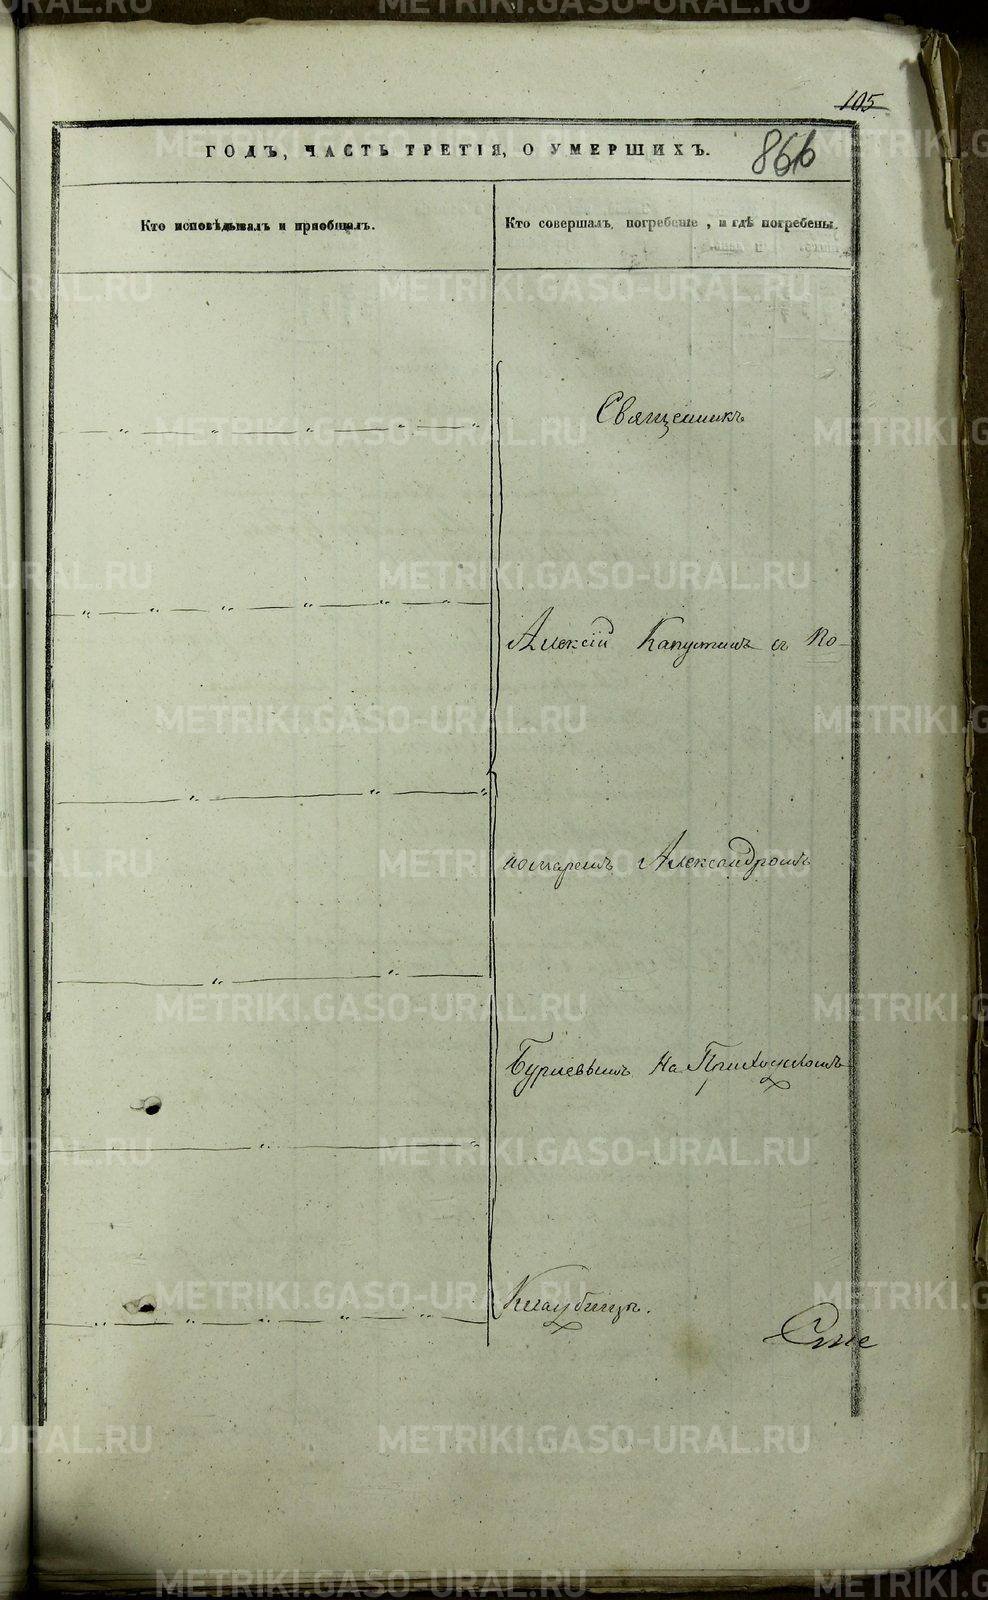 105
ГОДЪ, ЧАСТЬ ТРЕТІЯ, О УМЕРШИХЪ.
866
Кто исповѣдывалъ и пріобщалъ.
Кто совершалъ погребеніе, и гдѣ погребены.
Священникъ
Алексій Капустинъ съ По-
номаремъ Александромъ
Бурмевымъ На Приходскомъ
Кладбищѣ.
METRIKI.GASO-URAL.RU